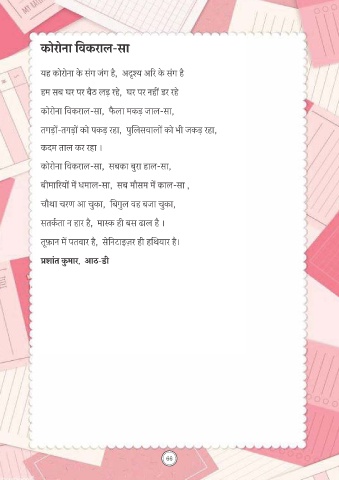 कोरोना विकराल-सा
यह कोरोना के संग जंग है, अदृश्य अरि के संग है
हम सब घर पर बैठ लड़ रहे, घर पर नहीं डर रहे
कोरोना विकराल-सा, फैला मकड़ जाल-सा,
तगड़ों-तगड़ों को पकड़ रहा, पुलिसवालों को भी जकड़ रहा,
कदम ताल कर रहा ।
कोरोना विकराल-सा, सबका बुरा हाल-सा,
बीमारियों में धमाल-सा, सब मौसम में काल-सा ,
चौथा चरण आ चुका, बिगुल वह बजा चुका,
सतर्कता न हार है, मास्क ही बस ढाल है ।
तूफ़ान में पतवार है, सेनिटाइज़र ही हथियार है।
प्रशांत कुमार, आठ-डी
66